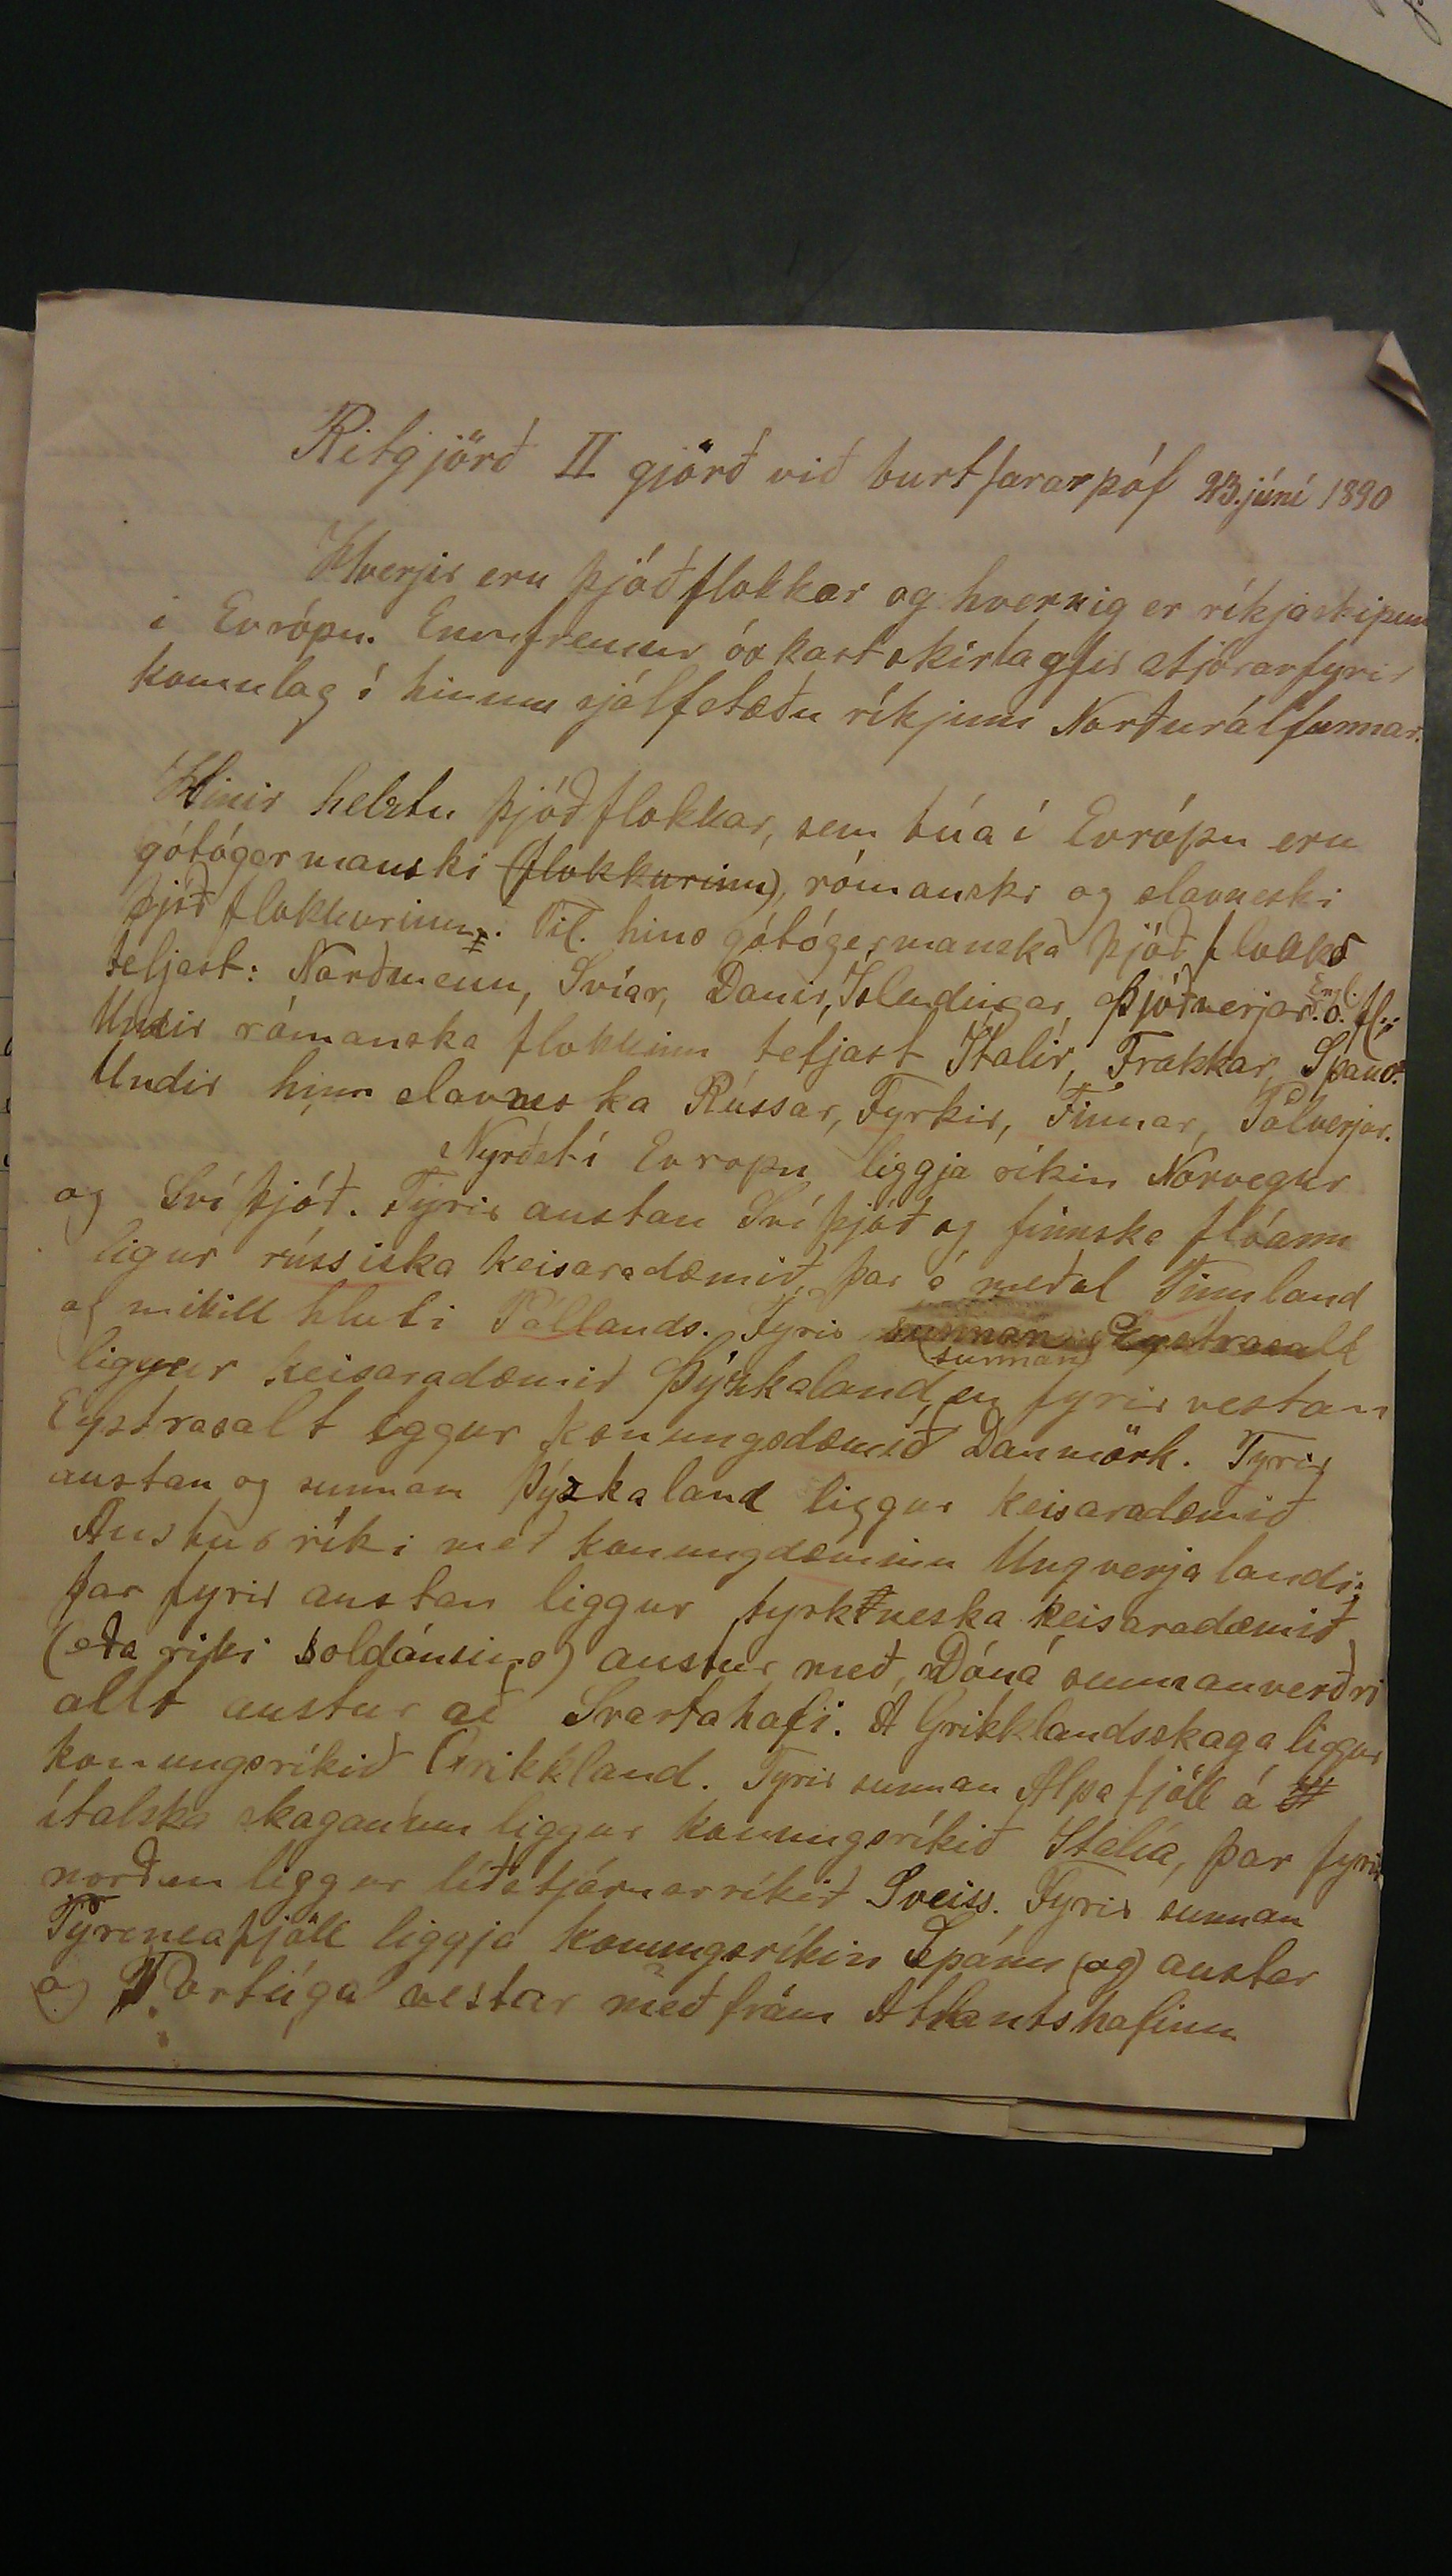 Ritgjörð II gjörð við burtfararpóf 23. júní 1890
Hverjir eru þjóðflokkar og hvernig er ríkjaskipun
í Evrópu. Ennfremur óskast skírlagfir stjórarfyrir
komulag í hinum sjálfstæðu ríkjum Norðurálfunnar.
Hinir helztu þjóðflokkar, sem búa í Evrópu eru
gótógermanski (flokkurinn), rómanski og slavneski
þjóðflokkurinn. Til hins gótógermanska þjóðflokks
teljast: Norðmenn, Svíar, Danir, Íslendingar, Þjóðverjar Engl. o. fl.;
Undir rómanska flokkinn teljast Ítalír, Frakkar, Spánv.
Undir hinn slavneska Rússar, Tyrkir, Finnar, Pólverjar.
Nyrðst í Evropu liggja ríkin Norvegur
og Svíþjóð. Fyrir austan Svíþjóð og finnska flóann
ligur rússiska keisaradæmið, þar á meðal Finnland
og mikill hluti Póllands. Fyrir sunnan Eystrasalt
(sunnan)
liggur keisaradæmið Þýzkaland, en fyrir vestan
Eystrasalt liggur konungsdæmið Danmörk. Fyrir
austan og sunnan Þýzkaland liggur keisaradæmið
Austurríki með konungdæminu Ungverjalandi;
þar fyrir austan liggur tyrkneska keisaradæmið
(eða ríki soldánsins) austur með Dóná sunnanverðri
allt austur að Svartahafi. Á Grikklandsskaga liggur
konungsríkið Grikkland. Fyrir sunnan Alpafjöll á
ítalska skaganum liggur konungsríkið Ítalía, þar fyrir
norðan liggur líðstjórnarríkið Sveiss. Fyrir sunnan
Pyreneafjöll liggja konungsríkin Spánn (og) austar
og Portúgal vestar með fram Atlantshafinu